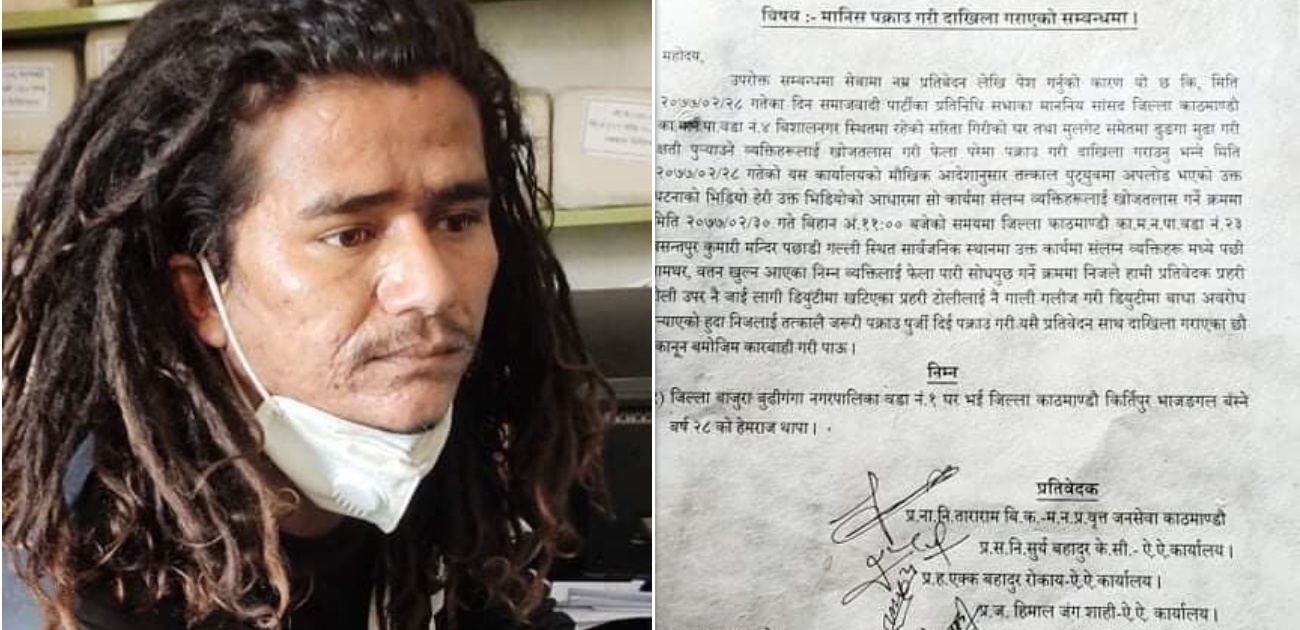 विषय :- मानिस पक्राउ गरी दाखिला गराएको सम्बन्धमा।
महोदय,
उपरोक्त सम्बन्धमा सेवामा नम्र प्रतिबेदन लेखि पेश गर्नुको कारण यो छ कि, मिति
२०७७/०२/२८ गतेका दिन समाजवादी पार्टीका प्रतिनिधि सभाका माननिय सांसद जिल्ला काठमाण्डौ
का.म.न.पा.वडा नं.४ बिशालनगर स्थितमा रहेको सरिता गिरीको घर तथा मुलगेट समेतमा ढुङगा मुढा गरी
क्षती पुऱ्याउने व्यक्तिहरूलाई खोजतलास गरी फेला परेमा पक्राउ गरी दाखिला गराउनु भन्ने मिति
२०७७/०२/२८ गतेको यस कार्यालयको मौखिक आदेशानुसार तत्काल युट्युवमा अपलोड भएको उक्त
घटनाको भिडियो हेरी उक्त भिडियोको आधारमा सो कार्यमा संलग्न व्यक्तिहरूलाई खोजतलास गर्ने क्रममा
मिति २०७७/०२/३० गते बिहान अं.११:०० बजेको समयमा जिल्ला काठमाण्डौ का.म.न.पा.वडा नं.२३
बसन्तपुर कुमारी मन्दिर पछाडी गल्ली स्थित सार्वजनिक स्थानमा उक्त कार्यमा संलग्न व्यक्तिहरू मध्ये पछी
नामथर, वतन खुल्न आएका निम्न व्यक्तिलाई फेला पारी सोधपुछ गर्ने क्रममा निजले हामी प्रतिवेदक प्रहरी
टोली उपर नै जाई लागी डियुटीमा खटिएका प्रहरी टोलीलाई नै गाली गलौज गरी डियुटीमा बाधा अवरोध
पुऱ्याएको हुदा निजलाई तत्कालै जरूरी पक्राउ पुर्जी दिई पक्राउ गरी यसै प्रतिवेदन साथ दाखिला गराएका छौ
कानून बमोजिम कारबाही गरी पाऊ।
निम्न
) जिल्ला बाजुरा बुढीगंगा नगरपालिका वडा नं.१ घर भई जिल्ला काठमाण्डौ किर्तिपुर भाजङगल बस्ने
बर्ष २८ को हेमराज थापा।
प्रतिवेदक
प्र.ना.नि.ताराराम बि.क.-म.न.प्र.वृत्त जनसेवा काठमाण्डौ
प्र.स.नि.सुर्य बहादुर के.सी.- ऐ.ऐ.कार्यालय।
प्र.ह.एक्क बहादुर रोकाय-ऐ.ऐ.कार्यालय।
प्र.ज. हिमाल जंग शाही-ऐ.ऐ. कार्यालय।